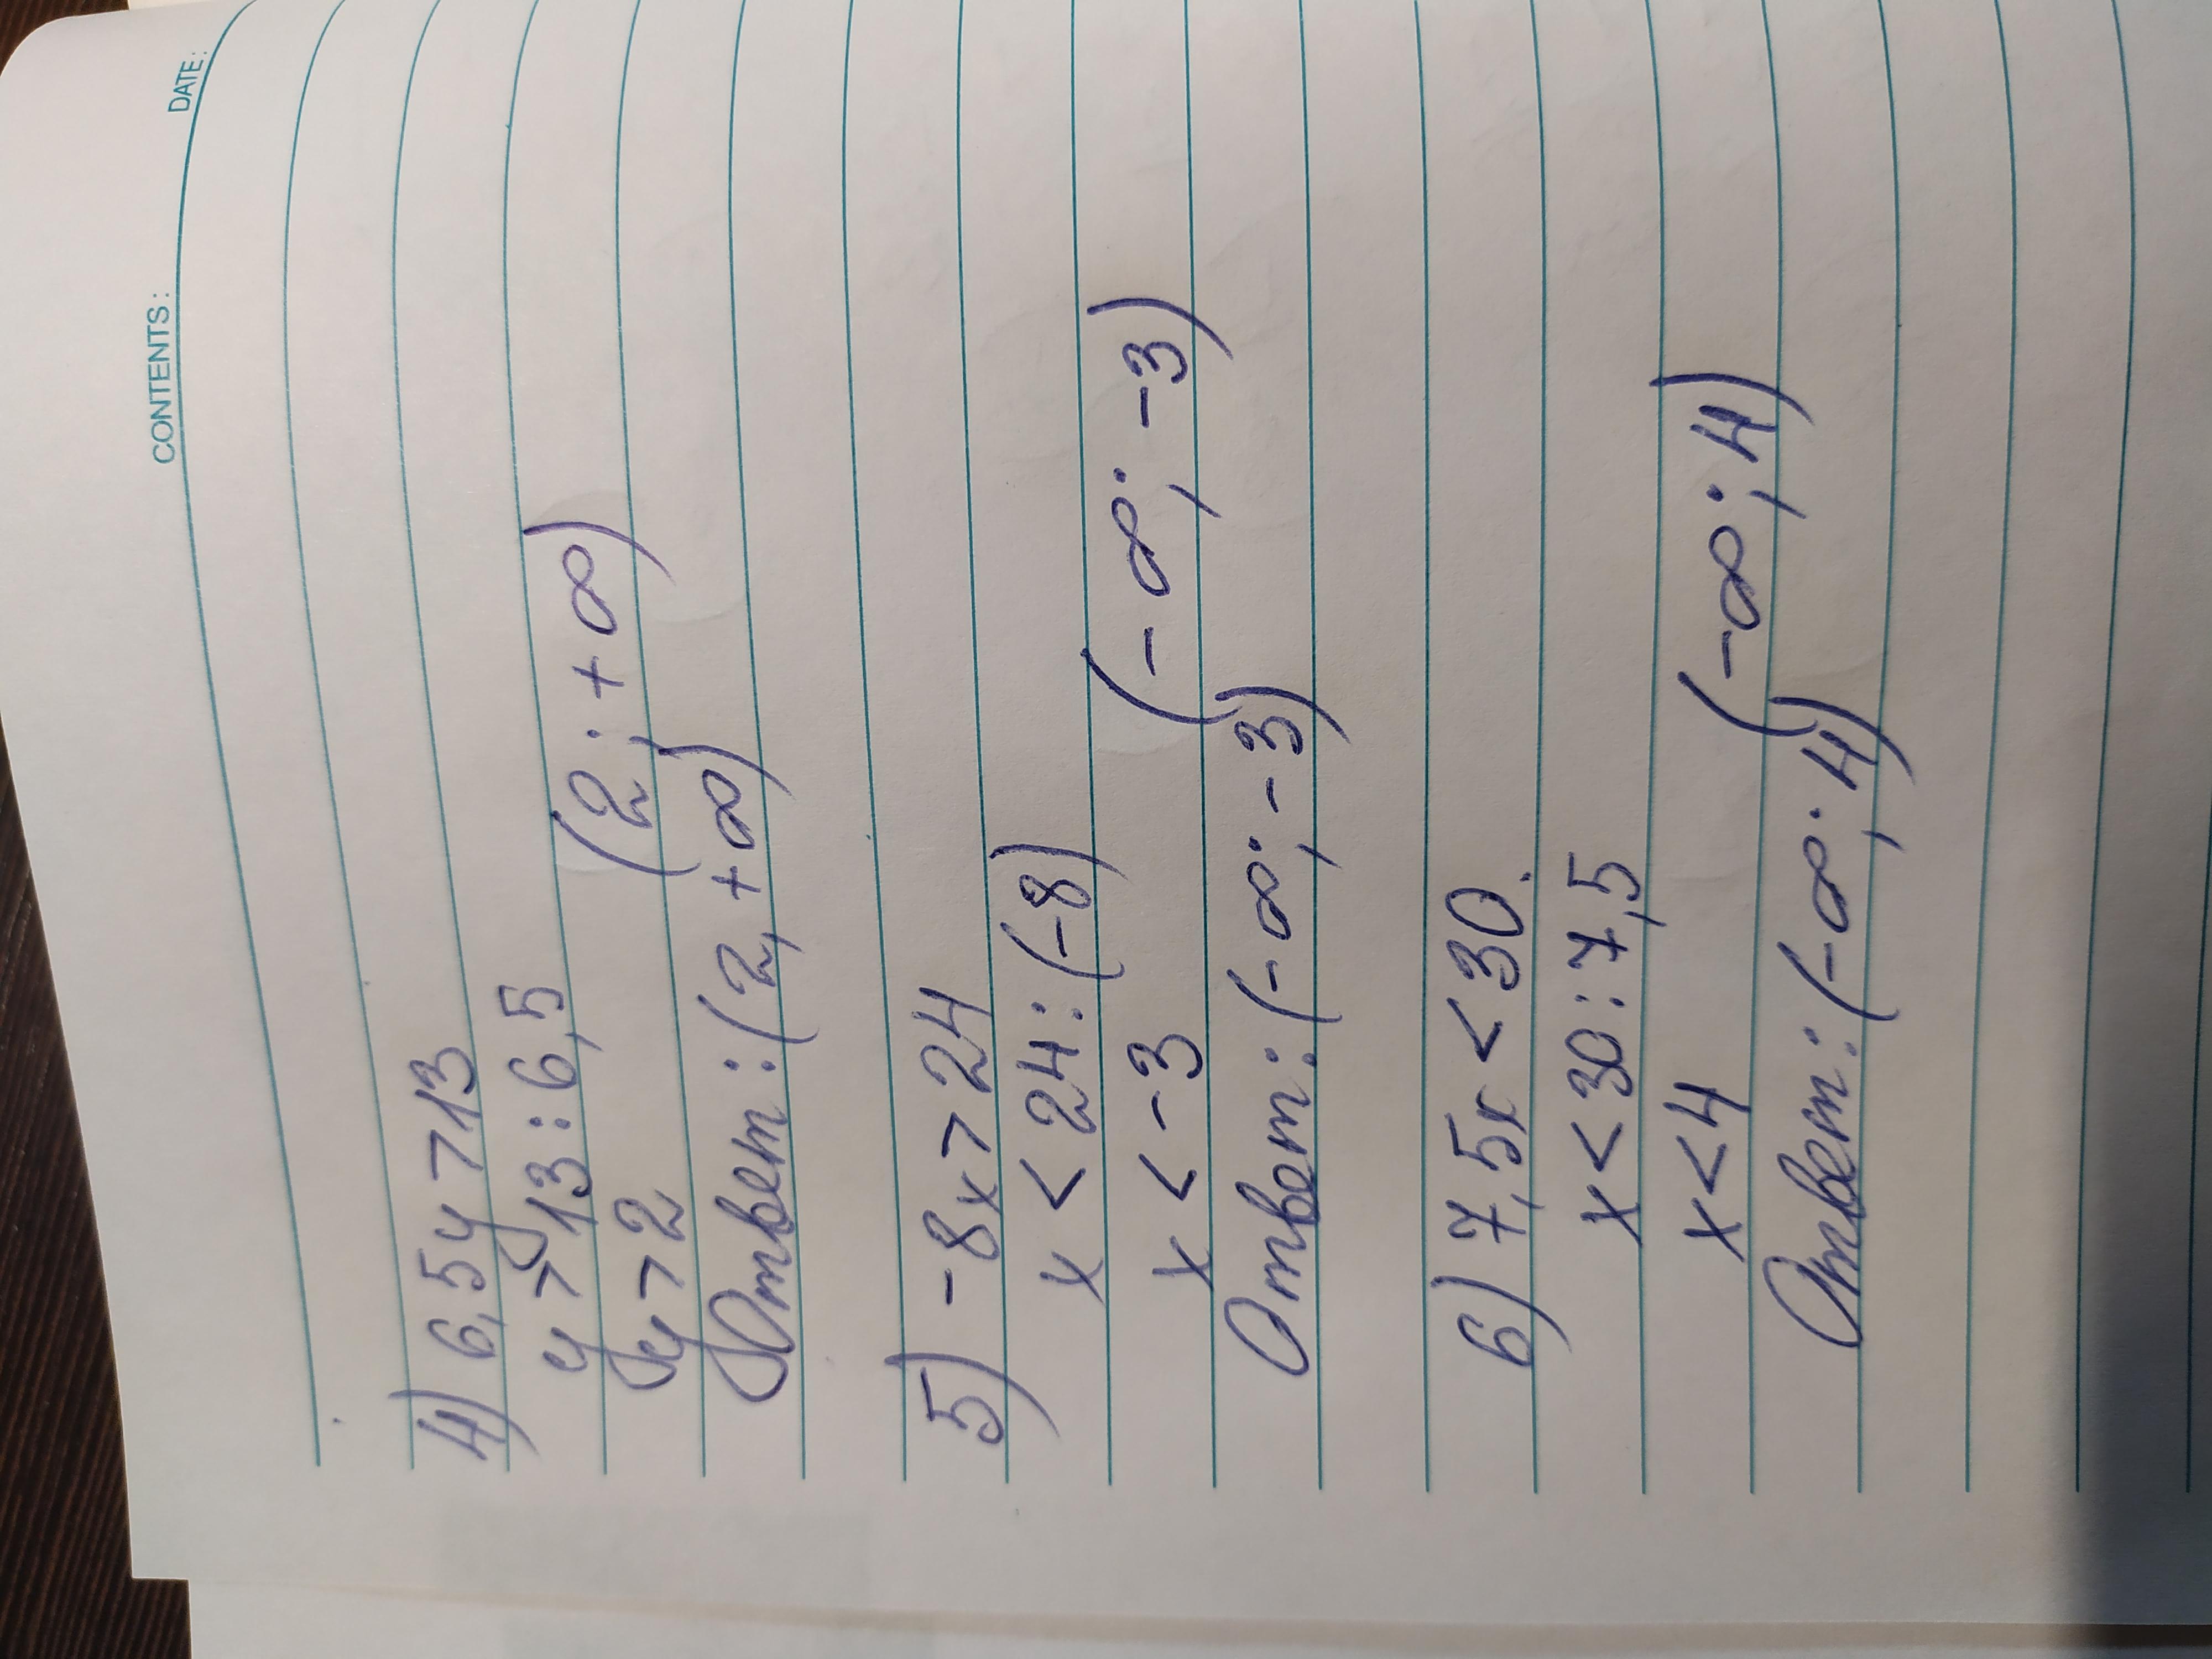 CONTENTS:
DATE:
4) 6,5y > 13
y > 13 : 6,5
y > 2 (2; +∞)
Ответ: (2, +∞)
5) -8x > 24
x < 24 : (-8)
x < -3 (-∞; -3)
Ответ: (-∞; -3)
6) 7,5x < 30.
x < 30 : 7,5
x < 4 (-∞; 4)
Ответ: (-∞; 4)